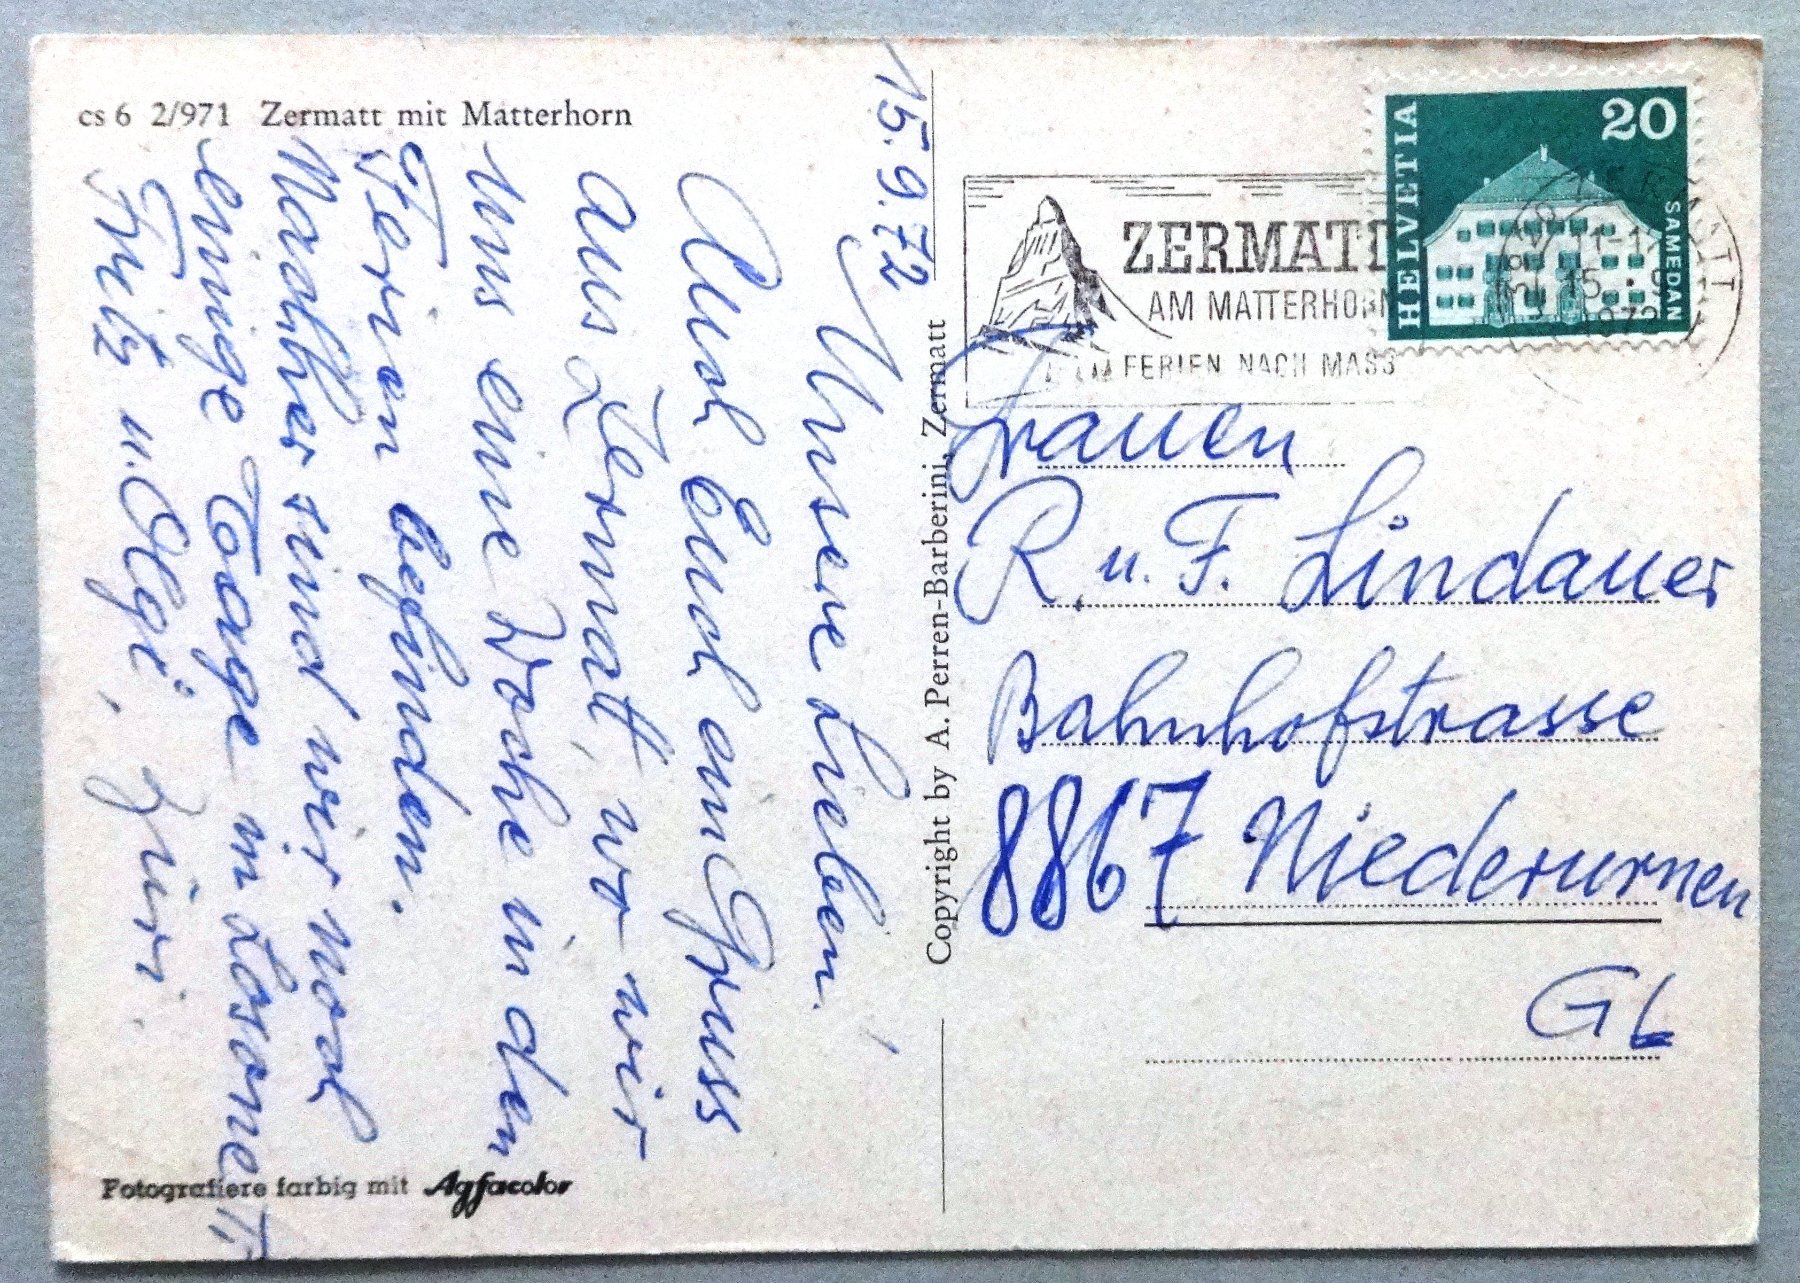 cs 6 2/971 Zermatt mit Matterhorn
15.9.72
Unsere Lieben!
Auch Euch ein Gruss
aus Zermatt, wo wir
uns eine Woche in den
Ferien befinden.
Nachher sind wir noch
einige Tage in Losone Ti,
Fritz u. Olgi, Züri.
Fotografiere farbig mit Agfacolor
Copyright by A. Perren-Barberini, Zermatt
ZERMATT
AM MATTERHORN
FERIEN NACH MASS
HELVETIA
20
SAMEDAN
ZERMATT
11-1
15.
1972
Frauen
R. u. F. Lindauer
Bahnhofstrasse
8867 Niederurnen
GL